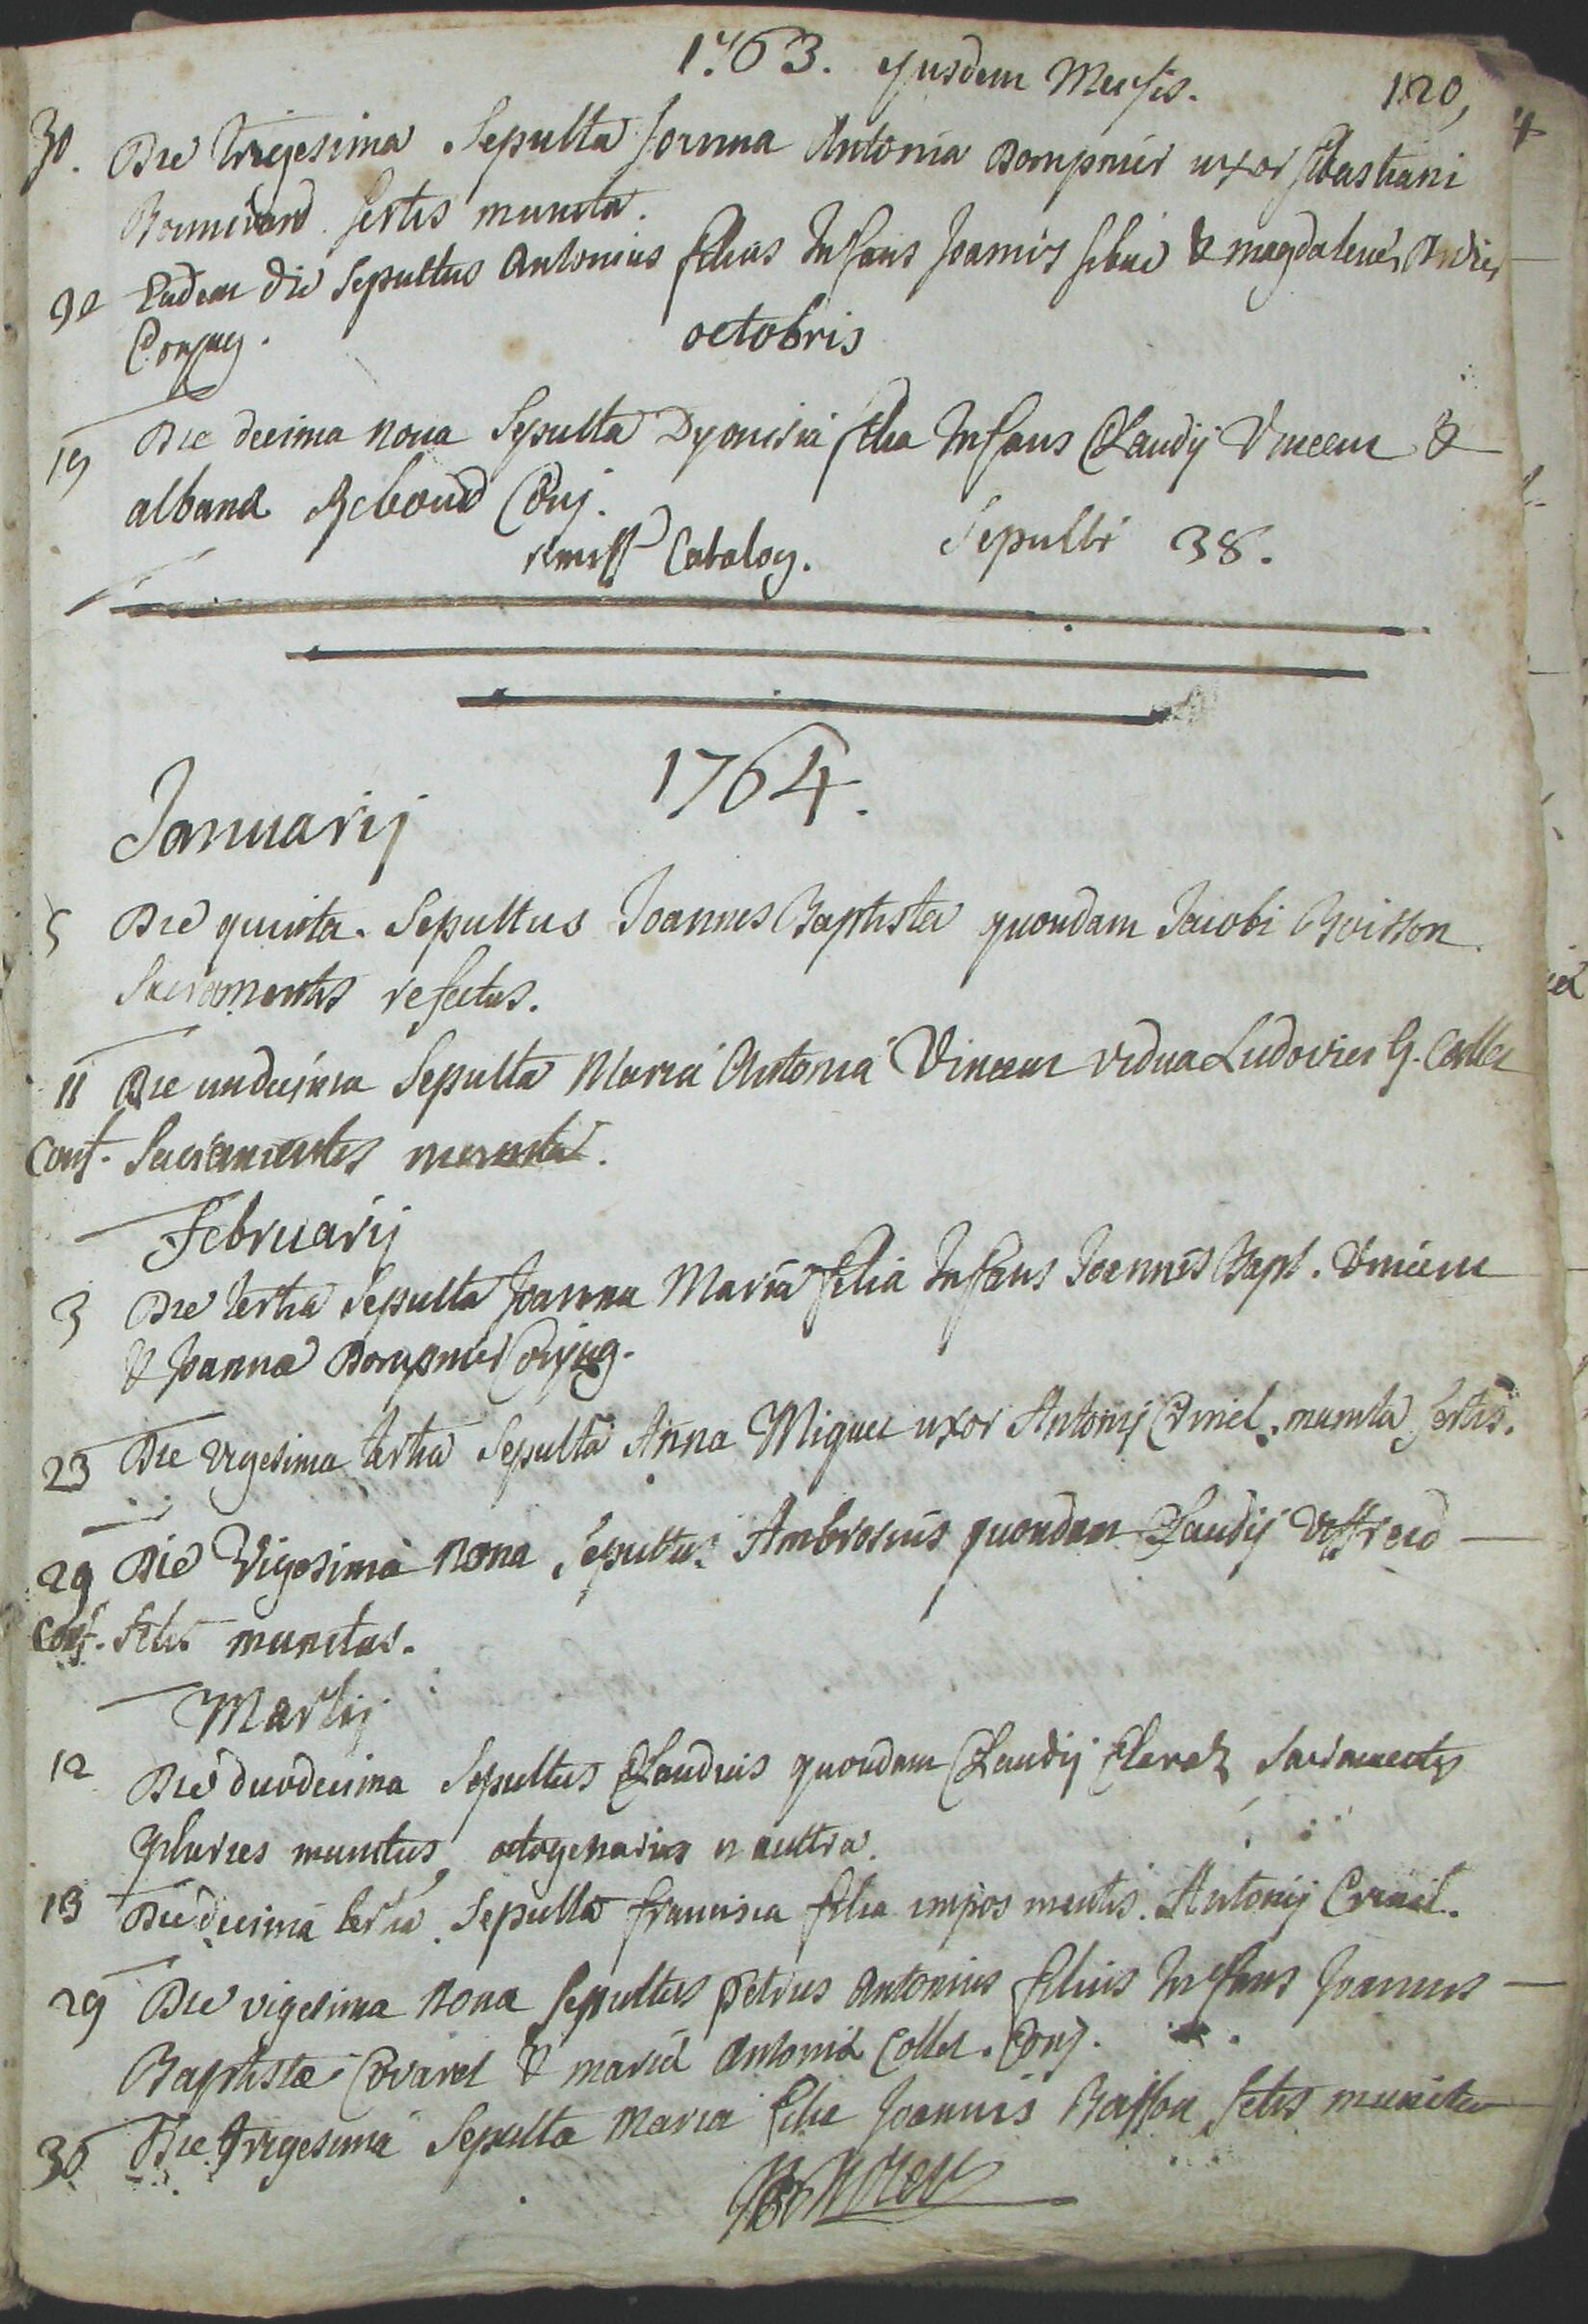 1763. ejusdem Mensis. 120,
30. Die trigesima Sepulta Joanna Antonia Dompmier uxor Sebastiani
sertis munita.
30 Eadem die Sepultus Antonius filius Infans Joannis & magdalenes
Conjug.
octobris
19 Die decima nona Sepulta Dyonisia filia Infans Claudij Vincem &
albana Reboud Conj.
Catalog. Sepulti 38.
1764.
Januarij
5 Die quinta. Sepultus Joannes Baptista quondam Jacobi Boisson
Sacramentis refectus.
11 Die undecima Sepulta Maria Antonia Vincem vidua Ludovici G. Collet
Conf. Sacramentis munita.
Februarij
3 Die tertia Sepulta Joanna Maria filia Infans Joannis Bapt. Vincem
& Joanna Dompmier Conjug.
23 Die vigesima tertia Sepulta Anna Miguet uxor Antonij munita sertis.
29 Die Vigesima nona Sepultus Ambrosius quondam Claudij Voffreid
Conf. sctis munitus.
Martij
12 Die duodecima Sepultus Claudius quondam Claudij Claraz Sacramentis
pluries munitus, octogenarius & ultra.
13 Die decima tertia. Sepulta francisca filia impos mentis. Antonij
29 Die vigesima nona Sepultus petrus Antonius filius Infans Joannis
Baptistæ & maria Antonia Collet. Conj.
30 Die trigesima Sepulta Maria filia Joannis Boisson sctis munita